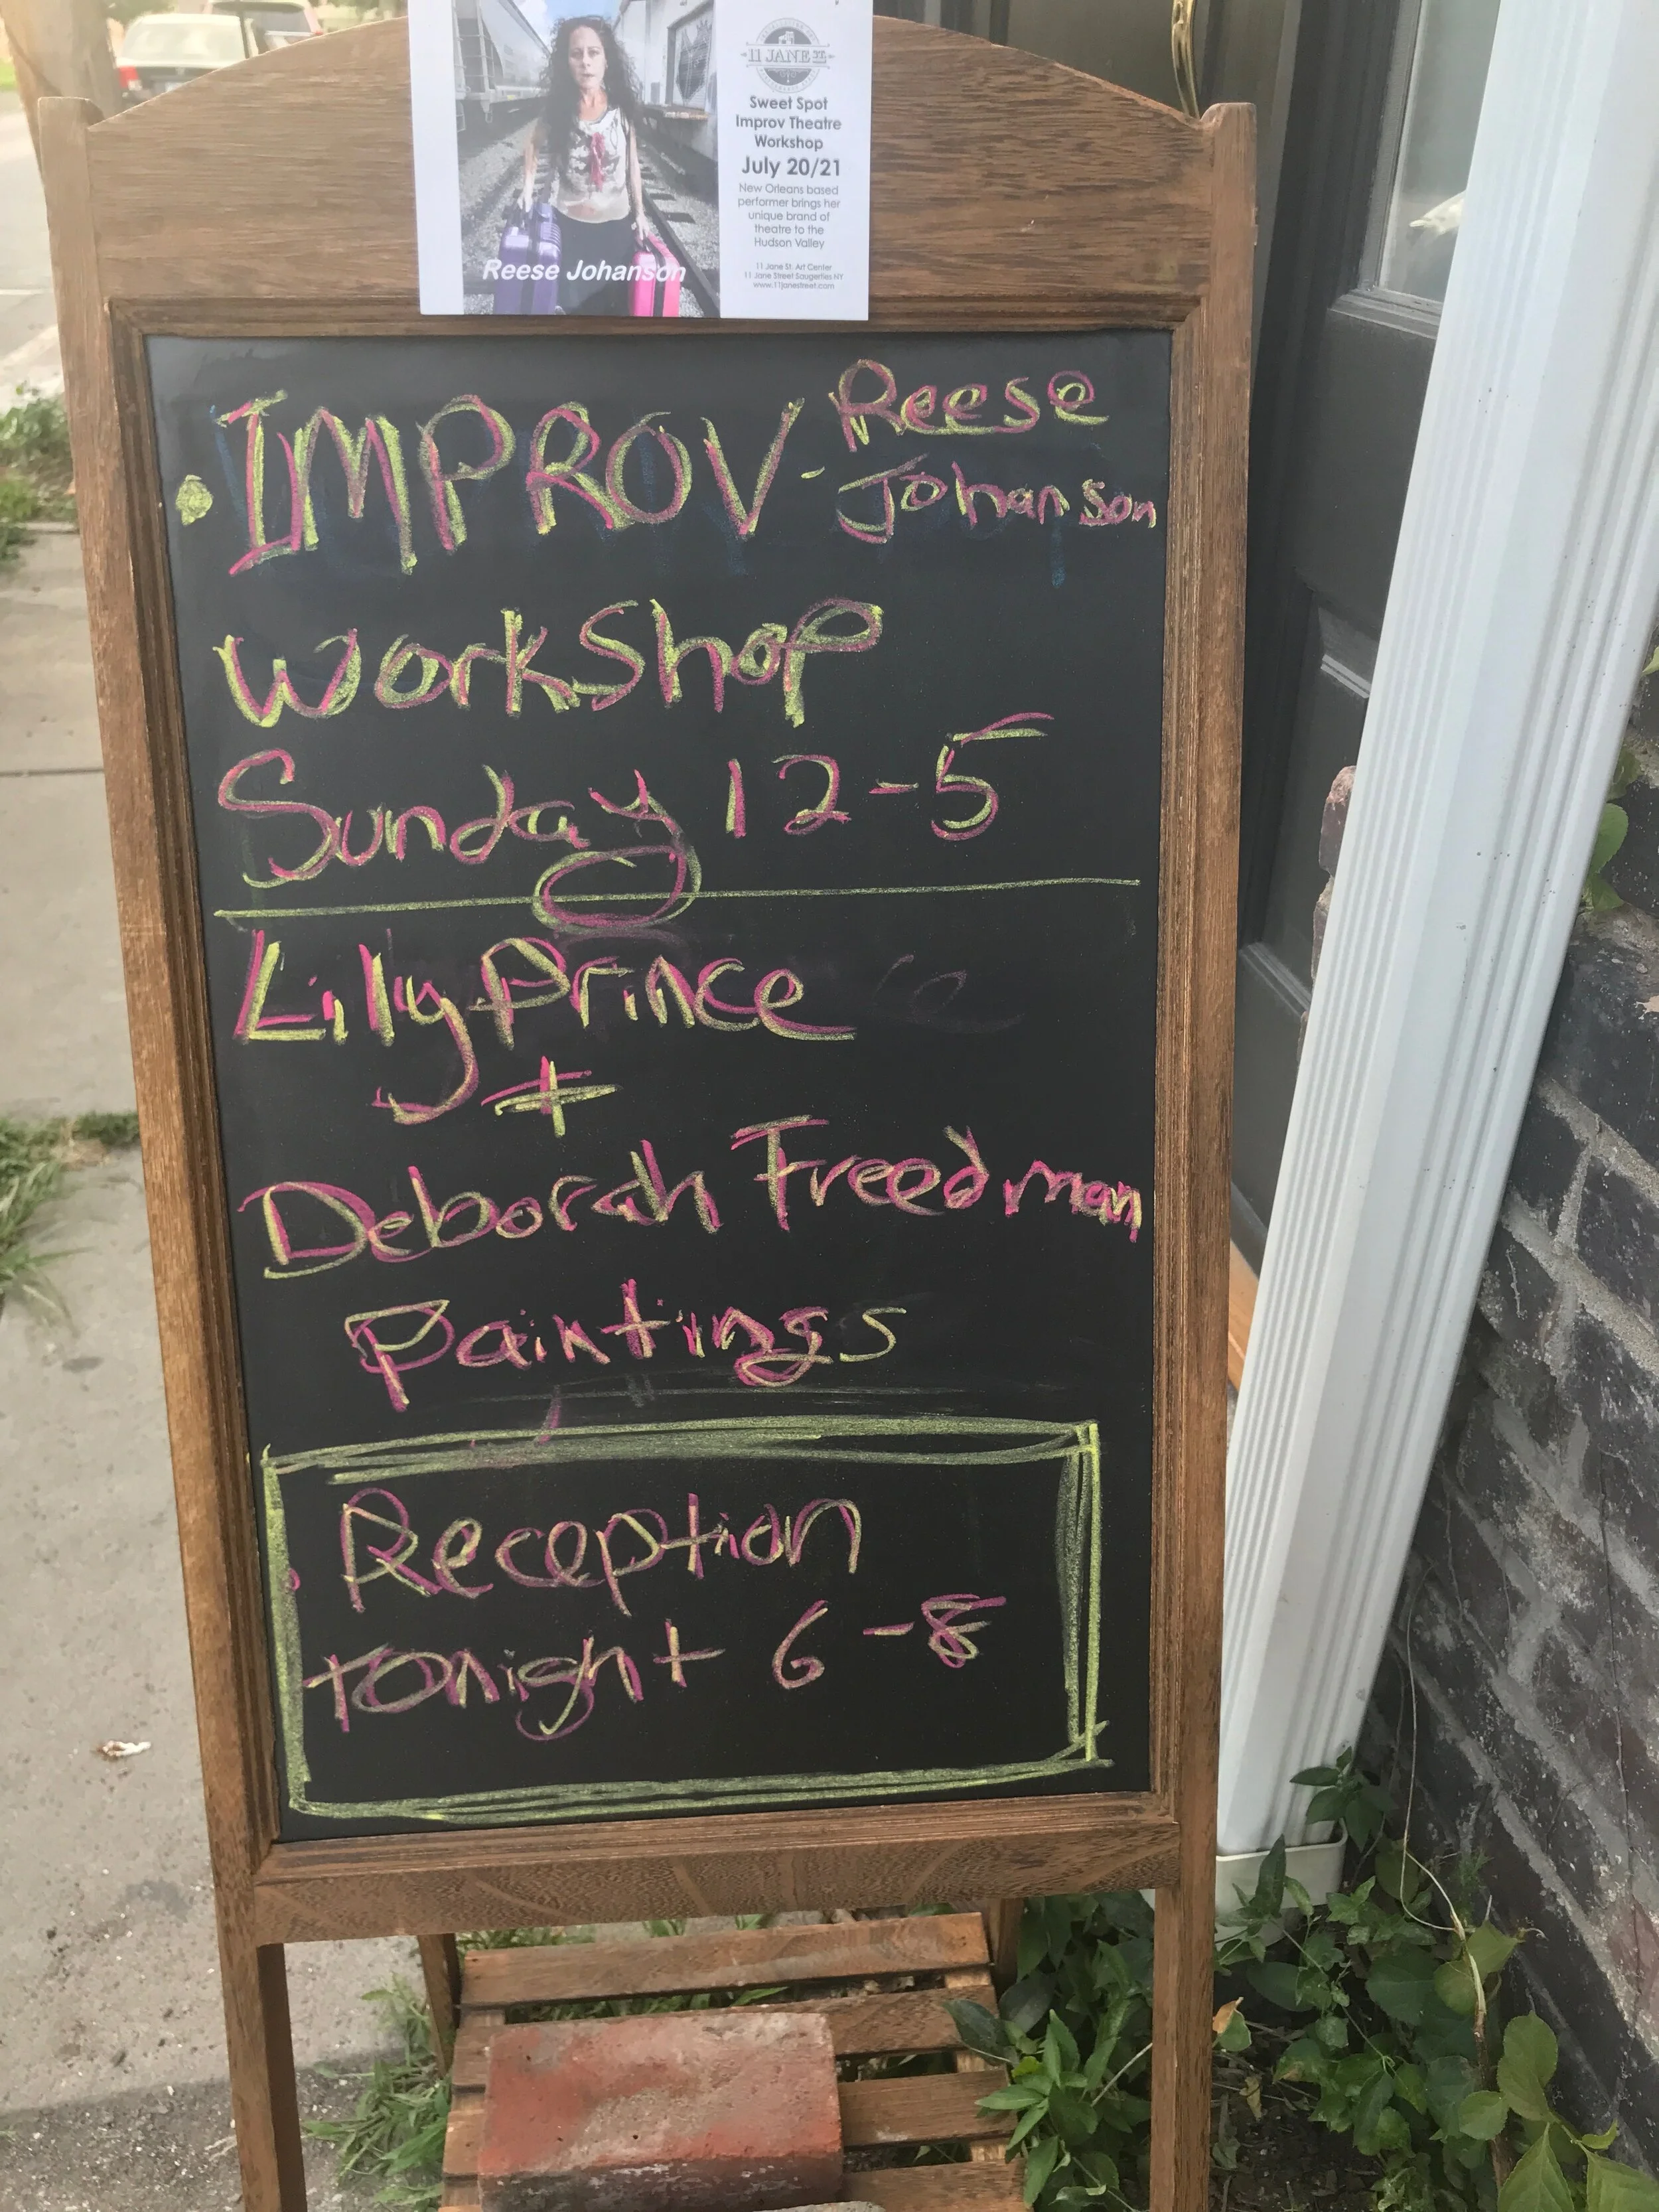 11 JANE ST.
Sweet Spot
Improv Theatre
Workshop
July 20/21
New Orleans based
performer brings her
unique brand of
theatre to the
Hudson Valley
11 Jane St. Art Center
11 Jane Street Saugerties NY
www.11janestreet.com
Reese Johanson
• IMPROV - Reese
Johanson
WorkShop
Sunday 12-5
Lily Prince
+
Deborah Freedman
Paintings
Reception
tonight 6-8